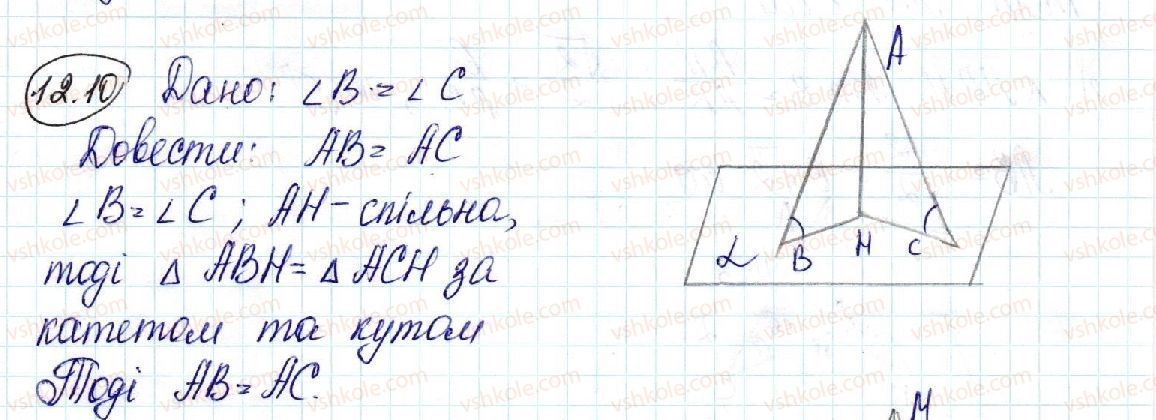 12.10 Дано: ∠B = ∠C
Довести: AB = AC
∠B = ∠C; AH – спільна,
тоді △ ABH = △ ACH за
катетом та кутом
Тоді AB = AC.
A
B
H
C
α
M
vshkole.com